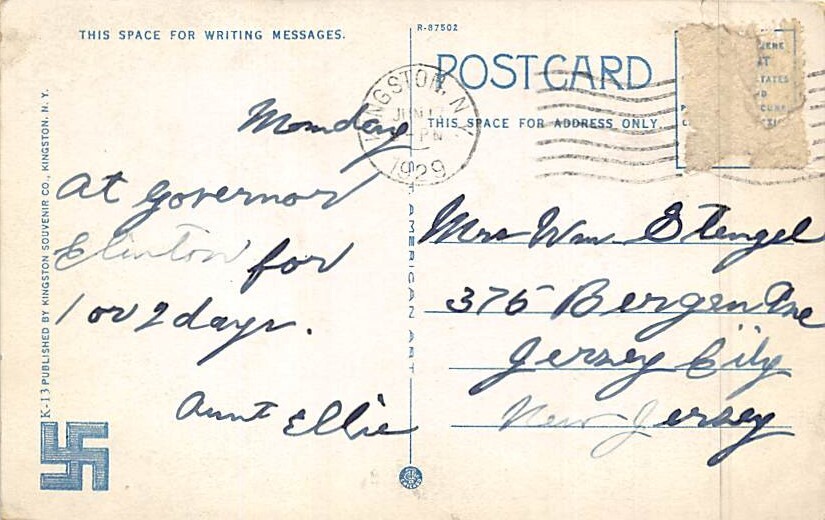 THIS SPACE FOR WRITING MESSAGES.
Monday
At Governor
Clinton for
1 or 2 days.
Aunt Ellie
K-13 PUBLISHED BY KINGSTON SOUVENIR CO., KINGSTON, N. Y.
R-87502
POST CARD
THIS SPACE FOR ADDRESS ONLY
KINGSTON, N.Y.
JUN 17
PM
1929
AMERICAN ART
Mrs Wm. Stengel
375 Bergen Ave
Jersey City
New Jersey